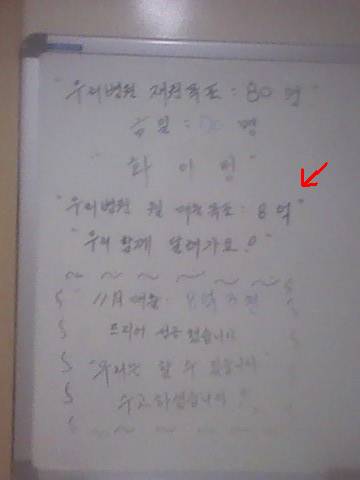 "우리병원 재원목표 : 80 명"
금일 : 명
"화 이 팅"
"우리병원 월 매출목표 : 8 억"
"우리 함께 달려가요!"
11月 매출 : 8억
드디어 성공 했습니다
"우리는 할 수 있습니다"
수고하셨습니다